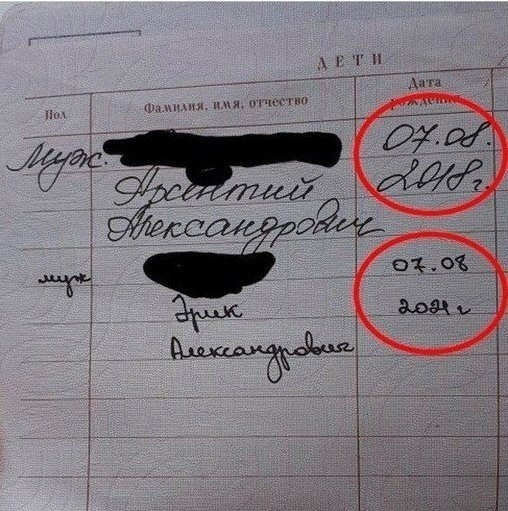 ДЕТИ
Пол
Фамилия, имя, отчество
Дата
рождения
муж.
07.08.
2018г.
Арсентий
Александрович
муж
07.08
2021г
Эрик
Александрович